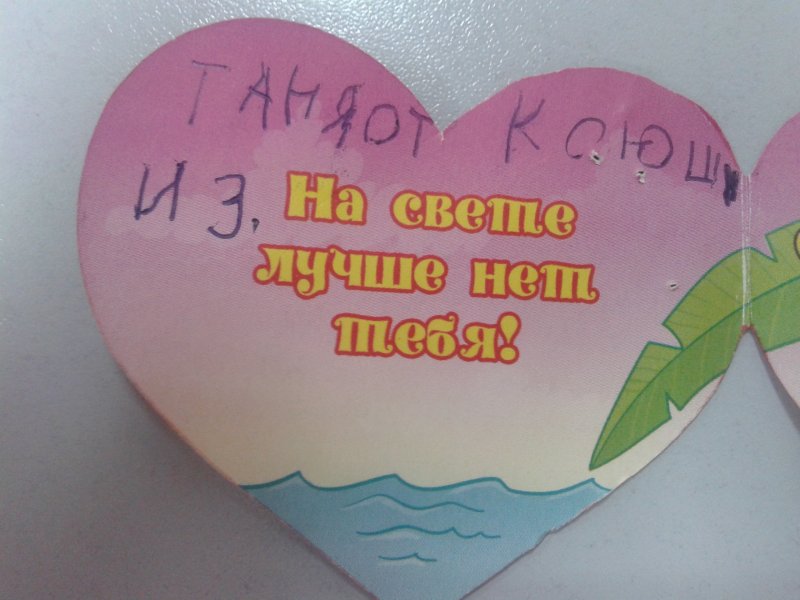 ТАНЯОТ КСЮШИ
ИЗ.
На свете
лучше нет
тебя!